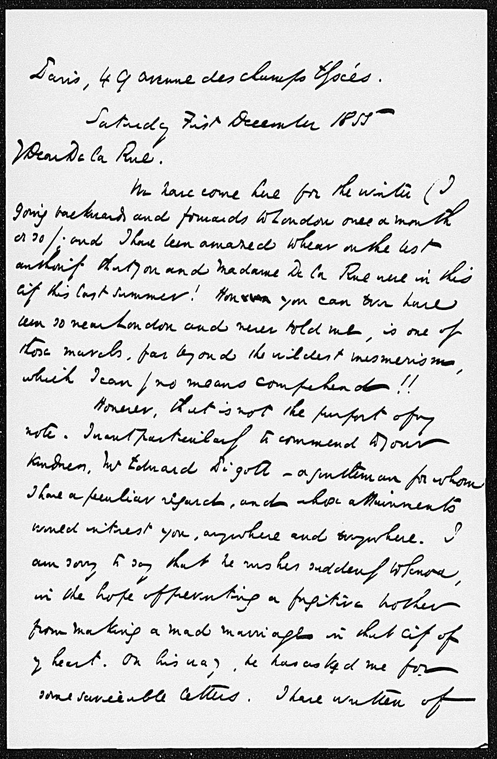 Paris, 49 avenue des champs Elysées.
Saturday First December 1855
My Dear De la Rue.
We have come here for the winter (I
going backwards and forwards to London once a month
or so); and I have been amazed to hear on the best
authority that you and Madame De la Rue were in this
city this last summer! How you can ever have
been so near London and never told me, is one of
those marvels, far beyond the wildest mesmerism,
which I can by no means comprehend!!
However, that is not the purport of my
note. I want particularly to commend to your
kindness, Mr Edward Pigott – a gentleman for whom
I have a peculiar regard, and whose attainments
would interest you, anywhere and everywhere. I
am sorry to say that he rushes suddenly to Genoa,
in the hope of preventing a fugitive brother
from making a mad marriage in that city of
my heart. On his way, he has asked me for
some serviceable letters. I have written of